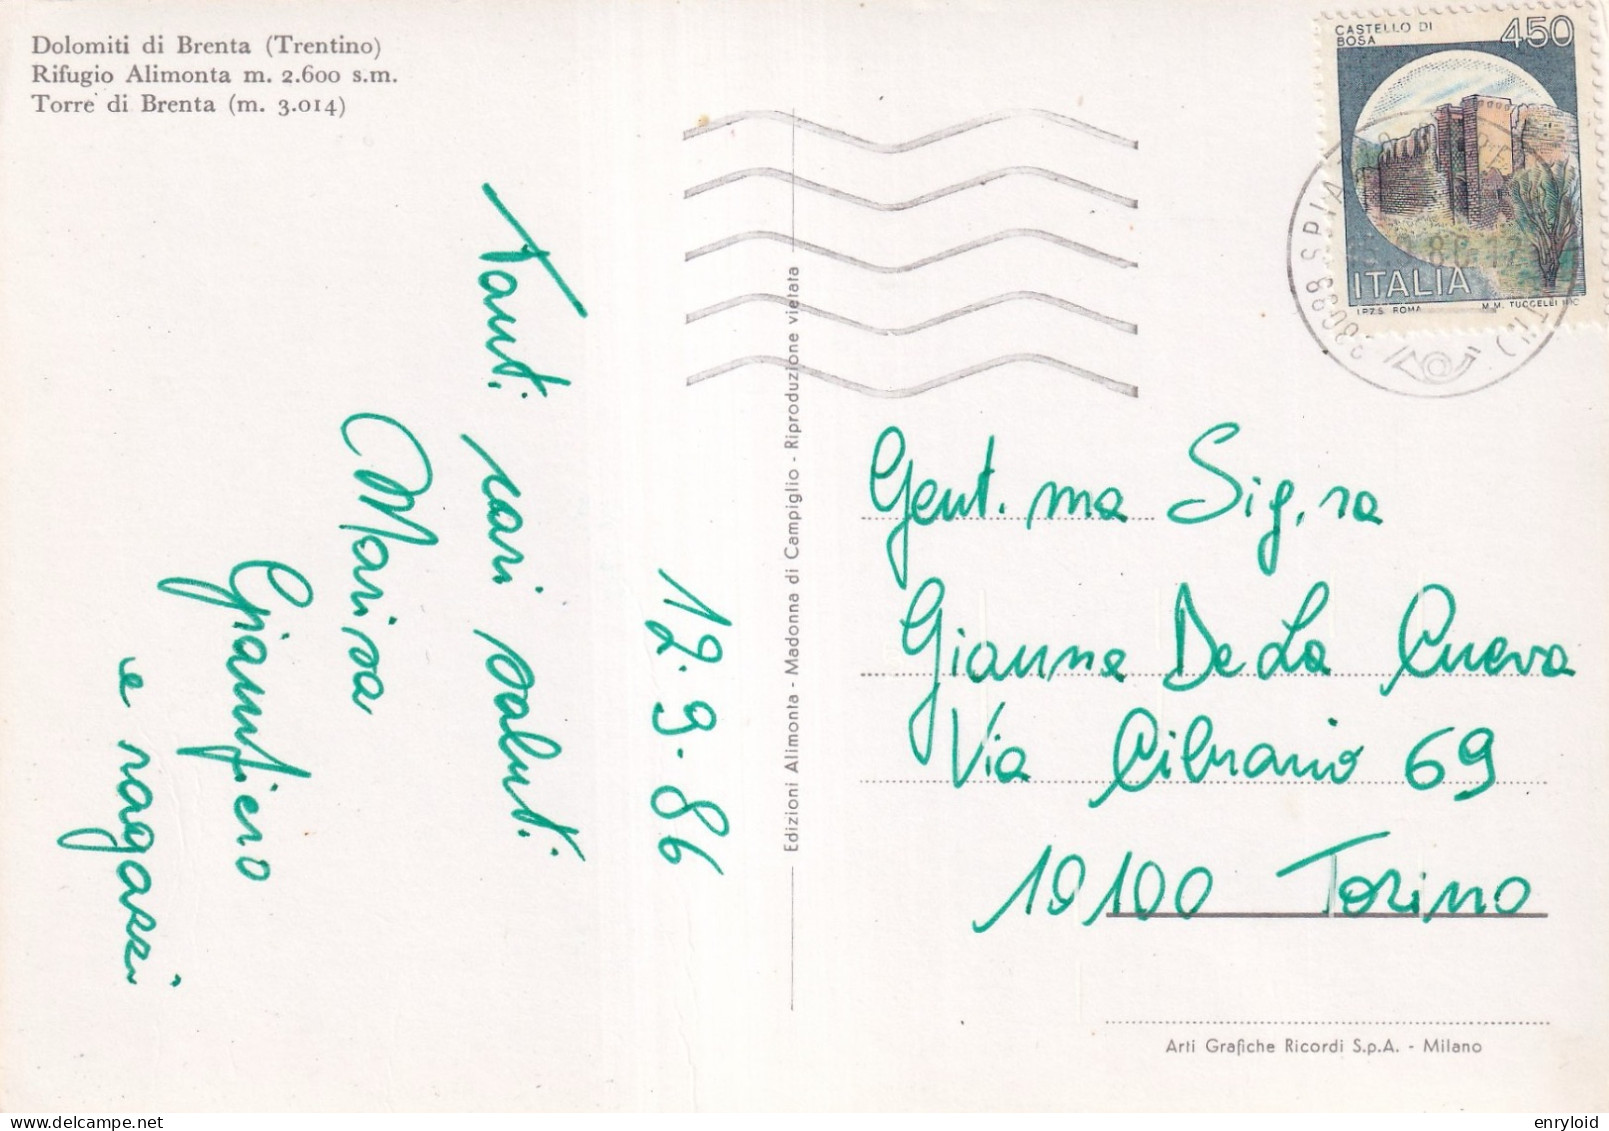 Dolomiti di Brenta (Trentino)
Rifugio Alimonta m. 2.600 s.m.
Torre di Brenta (m. 3.014)
CASTELLO DI
BOSA
450
ITALIA
I.P.Z.S. ROMA
M.M. TUCCELLI INC
38088 SPIAZZO
12.9.86
Tanti cari saluti
Marisa
Gianfiero
e ragazzi
Edizioni Alimonta - Madonna di Campiglio - Riproduzione vietata
Gent.ma Sig.ra
Gianna De La Cueva
Via Cibrario 69
10100 Torino
Arti Grafiche Ricordi S.p.A. - Milano
enryloid